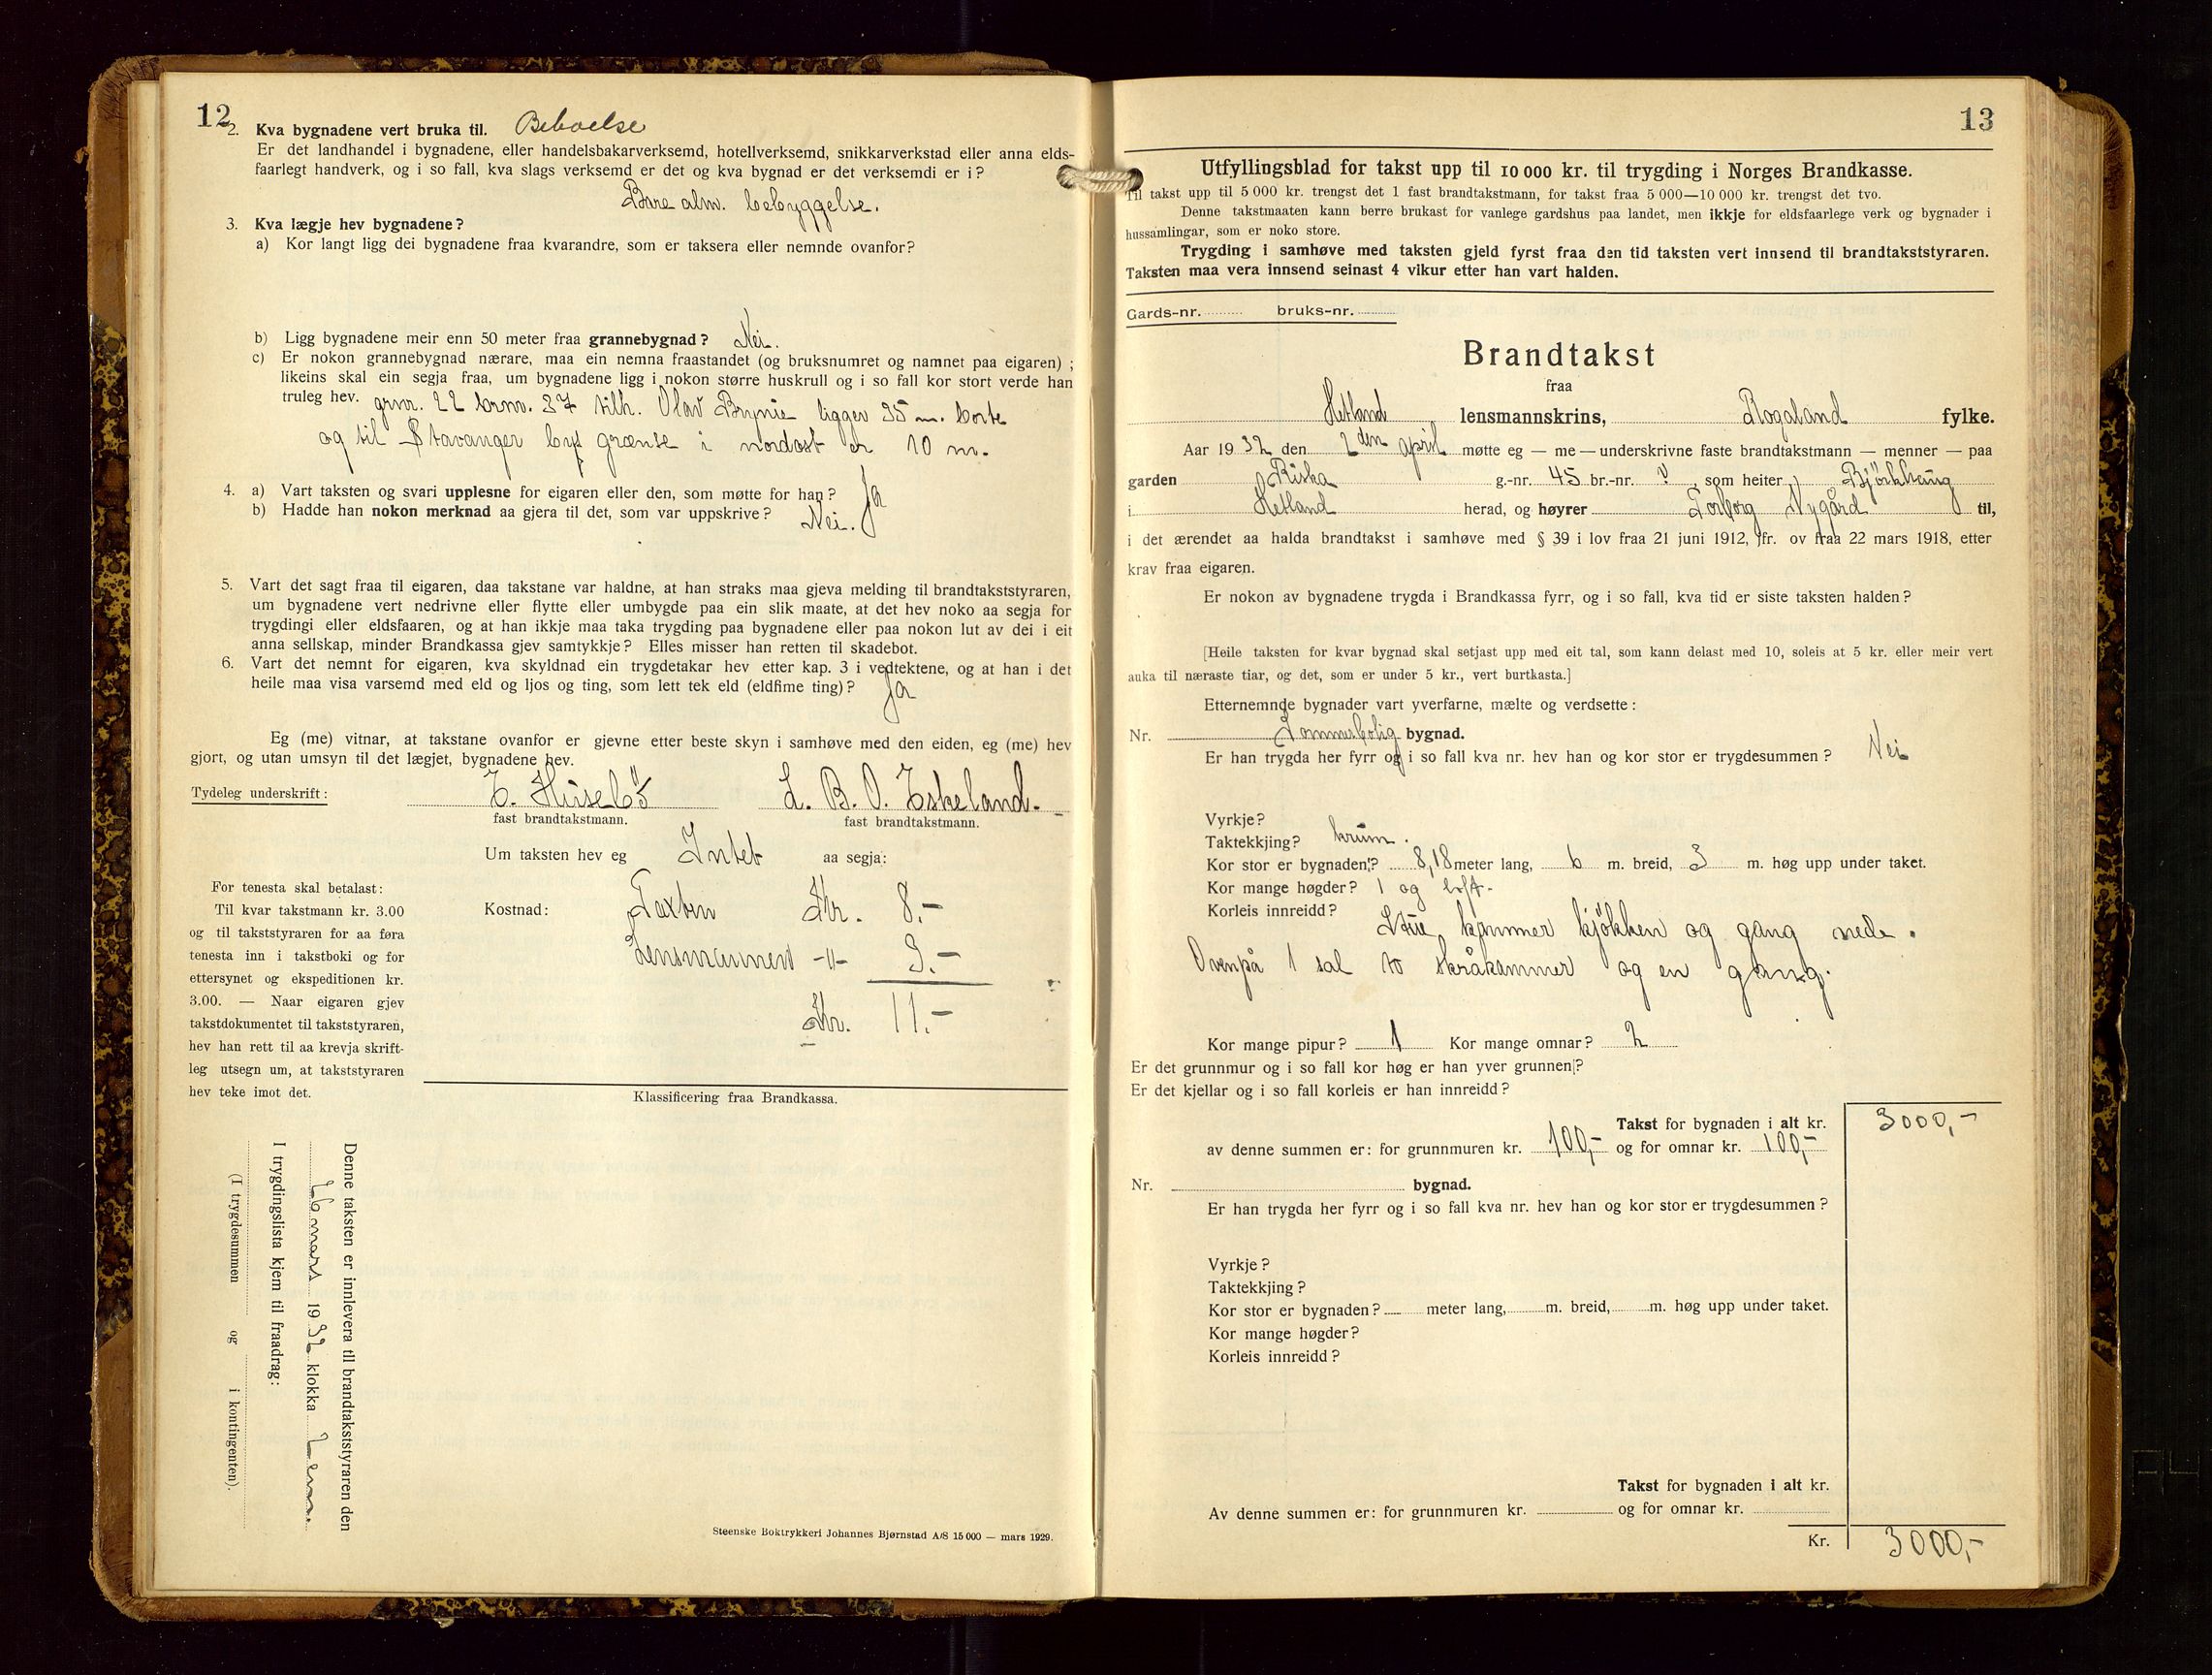 12
2. Kva bygnadene vert bruka til. Beboelse
Er det landhandel i bygnadene, eller handelsbakarverksemd, hotellverksemd, snikkarverkstad eller anna elds-
faarlegt handverk, og i so fall, kva slags verksemd er det og kva bygnad er det verksemdi er i?
Bare alm. bebyggelse.
3. Kva lægje hev bygnadene?
a) Kor langt ligg dei bygnadene fraa kvarandre, som er taksera eller nemnde ovanfor?
b) Ligg bygnadene meir enn 50 meter fraa grannebygnad? Nei.
c) Er nokon grannebygnad nærare, maa ein nemna fraastandet (og bruksnumret og namnet paa eigaren);
likeins skal ein segja fraa, um bygnadene ligg i nokon større huskrull og i so fall kor stort verde han
truleg hev. grnr. 22 brnr. 37 tilh. Olav Brynie ligger 35 m. borte
og til Stavanger bys grænse i nordost er 10 m.
4. a) Vart taksten og svari upplesne for eigaren eller den, som møtte for han? Ja
b) Hadde han nokon merknad aa gjera til det, som var uppskrive? Nei.
5. Vart det sagt fraa til eigaren, daa takstane var haldne, at han straks maa gjeva melding til brandtakststyraren,
um bygnadene vert nedrivne eller flytte eller umbygde paa ein slik maate, at det hev noko aa segja for
trygdingi eller eldsfaaren, og at han ikkje maa taka trygding paa bygnadene eller paa nokon lut av dei i eit
anna sellskap, minder Brandkassa gjev samtykkje? Elles misser han retten til skadebot.
6. Vart det nemnt for eigaren, kva skyldnad ein trygdetakar hev etter kap. 3 i vedtektene, og at han i det
heile maa visa varsemd med eld og ljos og ting, som lett tek eld (eldfime ting)? Ja
Eg (me) vitnar, at takstane ovanfor er gjevne etter beste skyn i samhøve med den eiden, eg (me) hev
gjort, og utan umsyn til det lægjet, bygnadene hev.
Tydeleg underskrift: E. Husebö L. B. O. Eskeland.
fast brandtakstmann. fast brandtakstmann.
Um taksten hev eg Intet aa segja:
For tenesta skal betalast:
Til kvar takstmann kr. 3.00
og til takststyraren for aa føra
tenesta inn i takstboki og for
ettersynet og ekspeditionen kr.
3.00. — Naar eigaren gjev
takstdokumentet til takststyraren,
hev han rett til aa krevja skrift-
leg utsegn um, at takststyraren
hev teke imot det.
Kostnad: Taxten Kr. 8.-
Lensmannen -"- 3.-
Kr. 11.-
Klassificering fraa Brandkassa.
Denne taksten er innlevera til brandtakststyraren den
26 mars 1932 klokka
I trygdingslista kjem til fraadrag:
(I trygdesummen og i kontingenten).
Steenske Boktrykkeri Johannes Bjørnstad A/S 15 000 — mars 1929.
13
Utfyllingsblad for takst upp til 10 000 kr. til trygding i Norges Brandkasse.
Til takst upp til 5 000 kr. trengst det 1 fast brandtakstmann, for takst fraa 5 000—10 000 kr. trengst det tvo.
Denne takstmaaten kann berre brukast for vanlege gardshus paa landet, men ikkje for eldsfaarlege verk og bygnader i
hussamlingar, som er noko store.
Trygding i samhøve med taksten gjeld fyrst fraa den tid taksten vert innsend til brandtakststyraren.
Taksten maa vera innsend seinast 4 vikur etter han vart halden.
Gards-nr. bruks-nr.
Brandtakst
fraa
Hetland lensmannskrins, Rogaland fylke.
Aar 1932 den 2den april møtte eg — me — underskrivne faste brandtakstmann — menner — paa
garden Riska g.-nr. 45 br.-nr. ? som heiter Björkhaug
i Hetland herad, og høyrer Torborg Nygård til,
i det ærendet aa halda brandtakst i samhøve med § 39 i lov fraa 21 juni 1912, jfr. ov fraa 22 mars 1918, etter
krav fraa eigaren.
Er nokon av bygnadene trygda i Brandkassa fyrr, og i so fall, kva tid er siste taksten halden?
[Heile taksten for kvar bygnad skal setjast upp med eit tal, som kann delast med 10, soleis at 5 kr. eller meir vert
auka til næraste tiar, og det, som er under 5 kr., vert burtkasta.]
Etternemnde bygnader vart yverfarne, mælte og verdsette:
Nr. Sommerbolig bygnad.
Er han trygda her fyrr og i so fall kva nr. hev han og kor stor er trygdesummen? Nei
Vyrkje?
Taktekkjing? krum.
Kor stor er bygnaden? 8,18 meter lang, 6 m. breid, 3 m. høg upp under taket.
Kor mange høgder? 1 og loft.
Korleis innreidd? Stue kammer kjökken og gang nede.
Ovenpå 1 sal to skråkammer og en gang.
Kor mange pipur? 1 Kor mange omnar? 2
Er det grunnmur og i so fall kor høg er han yver grunnen?
Er det kjellar og i so fall korleis er han innreidd?
Takst for bygnaden i alt kr. 3000,-
av denne summen er: for grunnmuren kr. 100,- og for omnar kr. 100,-
Nr. bygnad.
Er han trygda her fyrr og i so fall kva nr. hev han og kor stor er trygdesummen?
Vyrkje?
Taktekkjing?
Kor stor er bygnaden? meter lang, m. breid, m. høg upp under taket.
Kor mange høgder?
Korleis innreidd?
Takst for bygnaden i alt kr.
Av denne summen er: for grunnmuren kr. og for omnar kr.
Kr. 3000,-